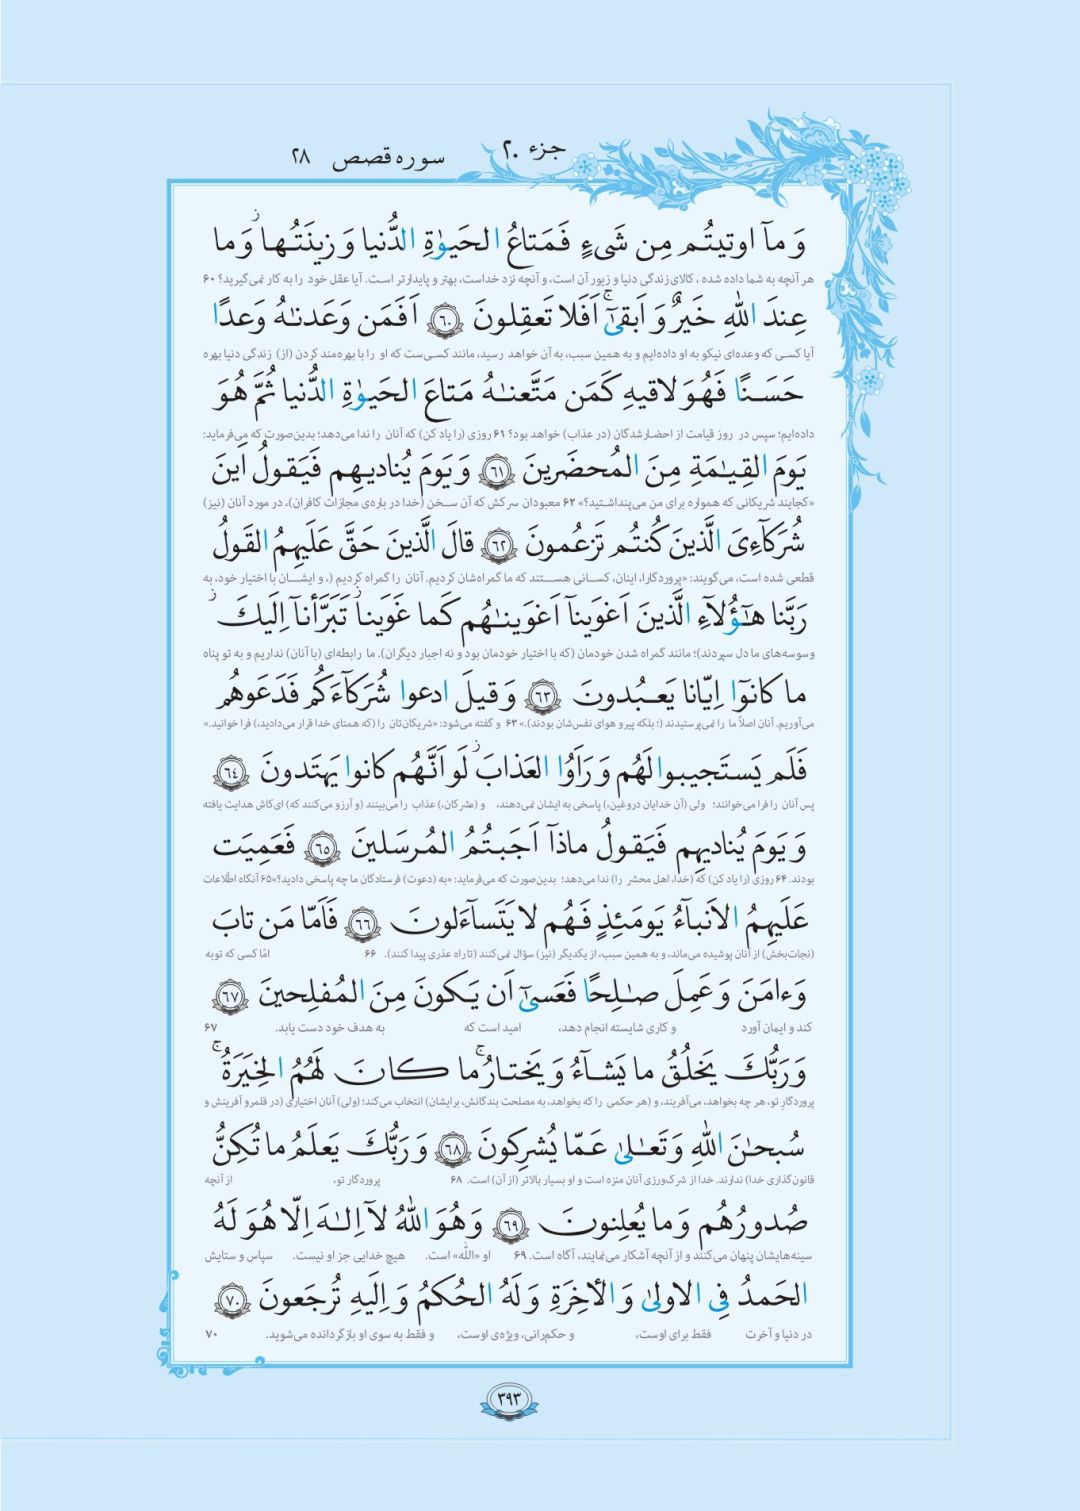 جزء ۲۰
سوره قصص ۲۸
وَ مآ اوتيتُم مِن شَىءٍ فَمَتاعُ الحَيوٰةِ الدُّنيا وَ زينَتُهاۚ وَ ما
هر آنچه به شما داده شده ، کالای زندگی دنیا و زیور آن است، و آنچه نزد خداست، بهتر و پایدارتر است. آیا عقل خود را به کار نمی‌گیرید؟ ۶۰
عِندَ اللهِ خَيرٌ وَ اَبقىٰٓۚ اَفَلا تَعقِلونَ ﴿٦٠﴾ اَفَمَن وَعَدنـٰهُ وَعدًا
آیا کسی که وعده‌ای نیکو به او داده‌ایم و به همین سبب، به آن خواهد رسید، مانند کسی‌ست که او را با بهره‌مند کردن (از) زندگی دنیا بهره
حَسَـنًا فَهُوَ لاقيهِ كَمَن مَتَّعنـٰهُ مَتاعَ الحَيوٰةِ الدُّنيا ثُمَّ هُوَ
داده‌ایم؛ سپس در روز قیامت از احضارشدگان (در عذاب) خواهد بود؟ ۶۱ روزی (را یاد کن) که آنان را ندا می‌دهد؛ بدین‌صورت که می‌فرماید:
يَومَ القِيـٰمَةِ مِنَ المُحضَرينَ ﴿٦١﴾ وَ يَومَ يُناديهِم فَيَقولُ اَينَ
«کجایند شریکانی که همواره برای من می‌پنداشتید؟» ۶۲ معبودان سرکش که آن سـخن (خدا در باره‌ی مجازات کافران)، در مورد آنان (نیز)
شُرَكآءِىَ الَّذينَ كُنتُم تَزعُمونَ ﴿٦٢﴾ قالَ الَّذينَ حَقَّ عَلَيهِمُ القَولُ
قطعی شده است، می‌گویند: «پروردگارا، اینان، کسـانی هسـتند که ما گمراه‌شان کردیم. آنان را گمراه کردیم (، و ایشـان با اختیار خود، به
رَبَّنا هـٰٓؤُلآءِ الَّذينَ اَغوَينآ اَغوَينـٰهُم كَما غَوَيناۖ تَبَرَّأنآ اِلَيكَۖ
وسوسه‌های ما دل سپردند)؛ مانند گمراه شدن خودمان (که با اختیار خودمان بود و نه اجبار دیگران). ما رابطه‌ای (با آنان) نداریم و به تو پناه
ما كانوٓا اِيّانا يَعـبُدونَ ﴿٦٣﴾ وَ قيلَ ادعوا شُرَكآءَكُم فَدَعَوهُم
می‌آوریم. آنان اصلاً ما را نمی‌پرستیدند (؛ بلکه پیرو هوای نفس‌شان بودند).» ۶۳ و گفته می‌شود: «شریکان‌تان را (که همتای خدا قرار می‌دادید،) فرا خوانید.»
فَلَم يَستَجيبوا لَهُم وَ رَاَوُا العَذابَۚ لَو اَنَّهُم كانوا يَهتَدونَ ﴿٦٤﴾
پس آنان را فرا می‌خوانند؛ ولی (آن خدایان دروغین،) پاسخی به ایشان نمی‌دهند، و (مشرکان،) عذاب را می‌بینند (و آرزو می‌کنند که) ای‌کاش هدایت یافته
وَ يَومَ يُناديهِم فَيَقولُ ماذآ اَجَبتُمُ المُرسَلينَ ﴿٦٥﴾ فَعَمِيَت
بودند. ۶۴ روزی (را یاد کن) که (خدا، اهل محشر را) ندا می‌دهد؛ بدین‌صورت که می‌فرماید: «به (دعوت) فرستادگان ما چه پاسخی دادید؟» ۶۵ آنگاه اطّلاعات
عَلَيهِمُ الاَنبآءُ يَومَئِذٍ فَهُم لا يَتَسآءَلونَ ﴿٦٦﴾ فَاَمّا مَن تابَ
(نجات‌بخش) از آنان پوشیده می‌ماند، و به همین سبب، از یکدیگر (نیز) سؤال نمی‌کنند (تا راه عذری پیدا کنند). ۶۶ امّا کسی که توبه
وَءامَنَ وَ عَمِلَ صـٰلِحًا فَعَسىٰٓ اَن يَكونَ مِنَ المُفلِحينَ ﴿٦٧﴾
کند و ایمان آورد و کاری شایسته انجام دهد، امید است که به هدف خود دست یابد. ۶۷
وَ رَبُّكَ يَخلُقُ ما يَشآءُ وَ يَختارُۚ ما كانَ لَهُمُ الخِيَرَةُۚ
پروردگار تو، هر چه بخواهد، می‌آفریند، و (هر حکمی را که بخواهد، به مصلحت بندگانش، برایشان) انتخاب می‌کند؛ (ولی) آنان اختیاری (در قلمرو آفرینش و
سُبحـٰنَ اللهِ وَ تَعـٰلىٰ عَمّا يُشرِكونَ ﴿٦٨﴾ وَ رَبُّكَ يَعلَمُ ما تُكِنُّ
قانون‌گذاری خدا) ندارند. خدا از شرک‌ورزی آنان منزه است و او بسیار بالاتر (از آن) است. ۶۸ پروردگار تو، از آنچه
صُدورُهُم وَ ما يُعلِنونَ ﴿٦٩﴾ وَ هُوَ اللهُ لآ اِلـٰهَ اِلّا هُوَ لَهُ
سینه‌هایشان پنهان می‌کنند و از آنچه آشکار می‌نمایند، آگاه است. ۶۹ او «الله» است. هیچ خدایی جز او نیست. سپاس و ستایش
الحَمدُ فِى الاولىٰ وَ الأخِرَةِ وَ لَهُ الحُكمُ وَ اِلَيهِ تُرجَعونَ ﴿٧٠﴾
در دنیا و آخرت فقط برای اوست، و حکم‌رانی، ویژه‌ی اوست، و فقط به سوی او بازگردانده می‌شوید. ۷۰
۳۹۳